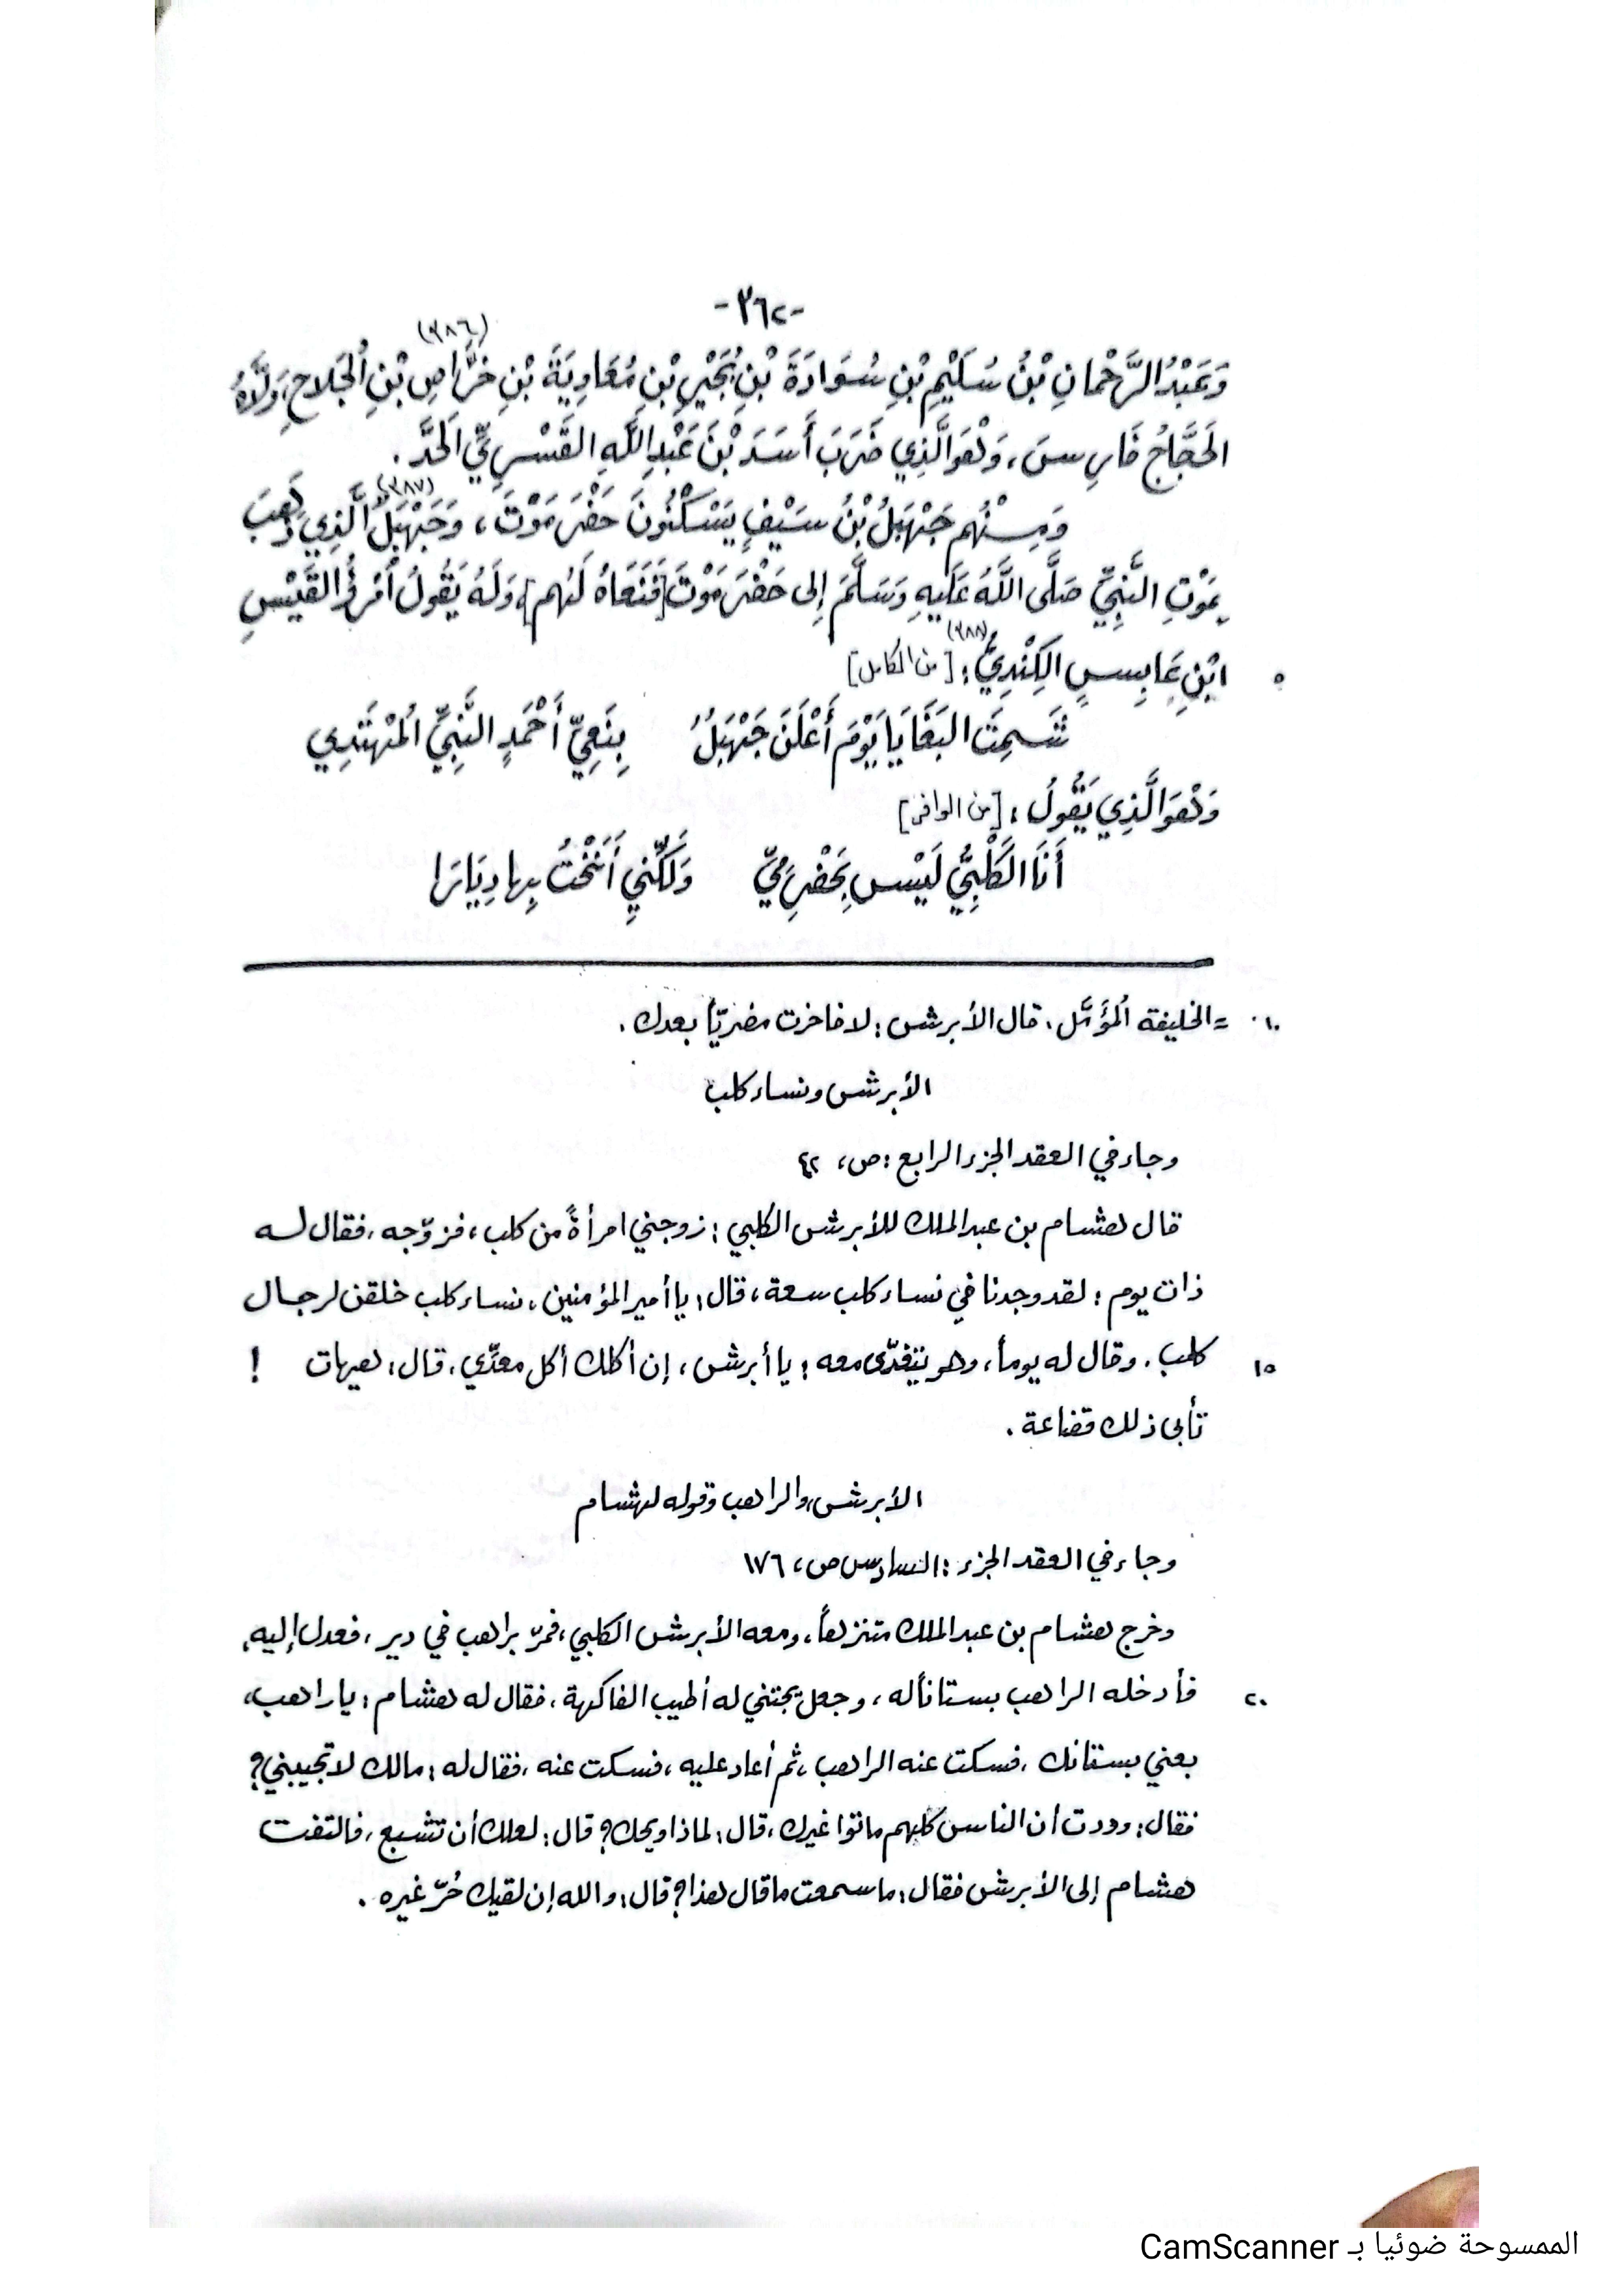 -٣٦٢-
(٣٨٦)
وَعَبْدُ الرَّحْمَانِ بْنُ سُلَيْمِ بْنِ سُوَادَةَ بْنِ بُجَيْرِ بْنِ مُعَاوِيَةَ بْنِ خَرَّاصِ بْنِ الْجَلاحِ، وَلَّاهُ
الحَجَّاجُ فَارِسَ، وَهُوَ الَّذِي ضَرَبَ أَسَدَ بْنَ عَبْدِ اللَّهِ القَسْرِيِّ الحَدَّ.
(٣٨٧)
وَمِنْهُم جَهْبَلُ بْنُ سَيْفٍ يَسْكُنُونَ حَضْرَمَوْتَ، وَجَهْبَلُ الَّذِي ذَهَبَ
بِمَوْتِ النَّبِيِّ صَلَّى اللَّهُ عَلَيهِ وَسَلَّمَ إِلى حَضْرَمَوْتَ [فَنَعَاهُ لَهُم]، وَلَهُ يَقُولُ امْرُؤُ القَيْسِ
(٣٨٨)
٥ ابْنِ عَابِسٍ الكِنْدِيُّ: [من الكامل]
شَمِتَ البَغَايَا يَوْمَ أَعْلَنَ جَهْبَلُ بِنَعِيِّ أَحْمَدٍ النَّبِيِّ المُهْتَدِي
وَهُوَ الَّذِي يَقُولُ: [من الوافر]
أَنَا الكَلْبِيُّ لَيْسَ بِحَضْرَمِيّ وَلَكِنِّي أَنَخْتُ بِها دِيَارَا
١٠ = الخليفة المُؤَمَّل. قال الأبرش: لا فاخرت مضريّاً بعدك.
الأبرش ونساء كلب
وجاء في العقد الجزء الرابع: ص، ٤٢
قال هشام بن عبد الملك للأبرش الكلبي: زوجني امرأةً من كلب، فزوّجه، فقال له
ذات يوم: لقد وجدنا في نساء كلب سعة، قال: يا أمير المؤمنين، نساء كلب خلقن لرجال
١٥ كلب. وقال له يوماً، وهو يتغدّى معه: يا أبرش، إن أكلك أكل معدّي، قال: هيهات !
تأبى ذلك قضاعة.
الأبرش والراهب وقوله لهشام
وجاء في العقد الجزء: السادس ص، ١٧٦
وخرج هشام بن عبد الملك متنزهاً، ومعه الأبرش الكلبي، فمرّ براهب في دير، فعدل إليه،
٢٠ فأدخله الراهب بستاناً له، وجعل يجتني له أطيب الفاكهة، فقال له هشام: يا راهب،
بعني بستانك، فسكت عنه الراهب، ثم أعاد عليه، فسكت عنه، فقال له: مالك لا تجيبني؟
فقال: وددت أن الناس كلهم ماتوا غيرك، قال: لماذا ويحك؟ قال: لعلك أن تشبع، فالتفت
هشام إلى الأبرش فقال: ما سمعت ما قال هذا؟ قال: والله إن لقيك حُرّ غيره.
الممسوحة ضوئيا بـ CamScanner